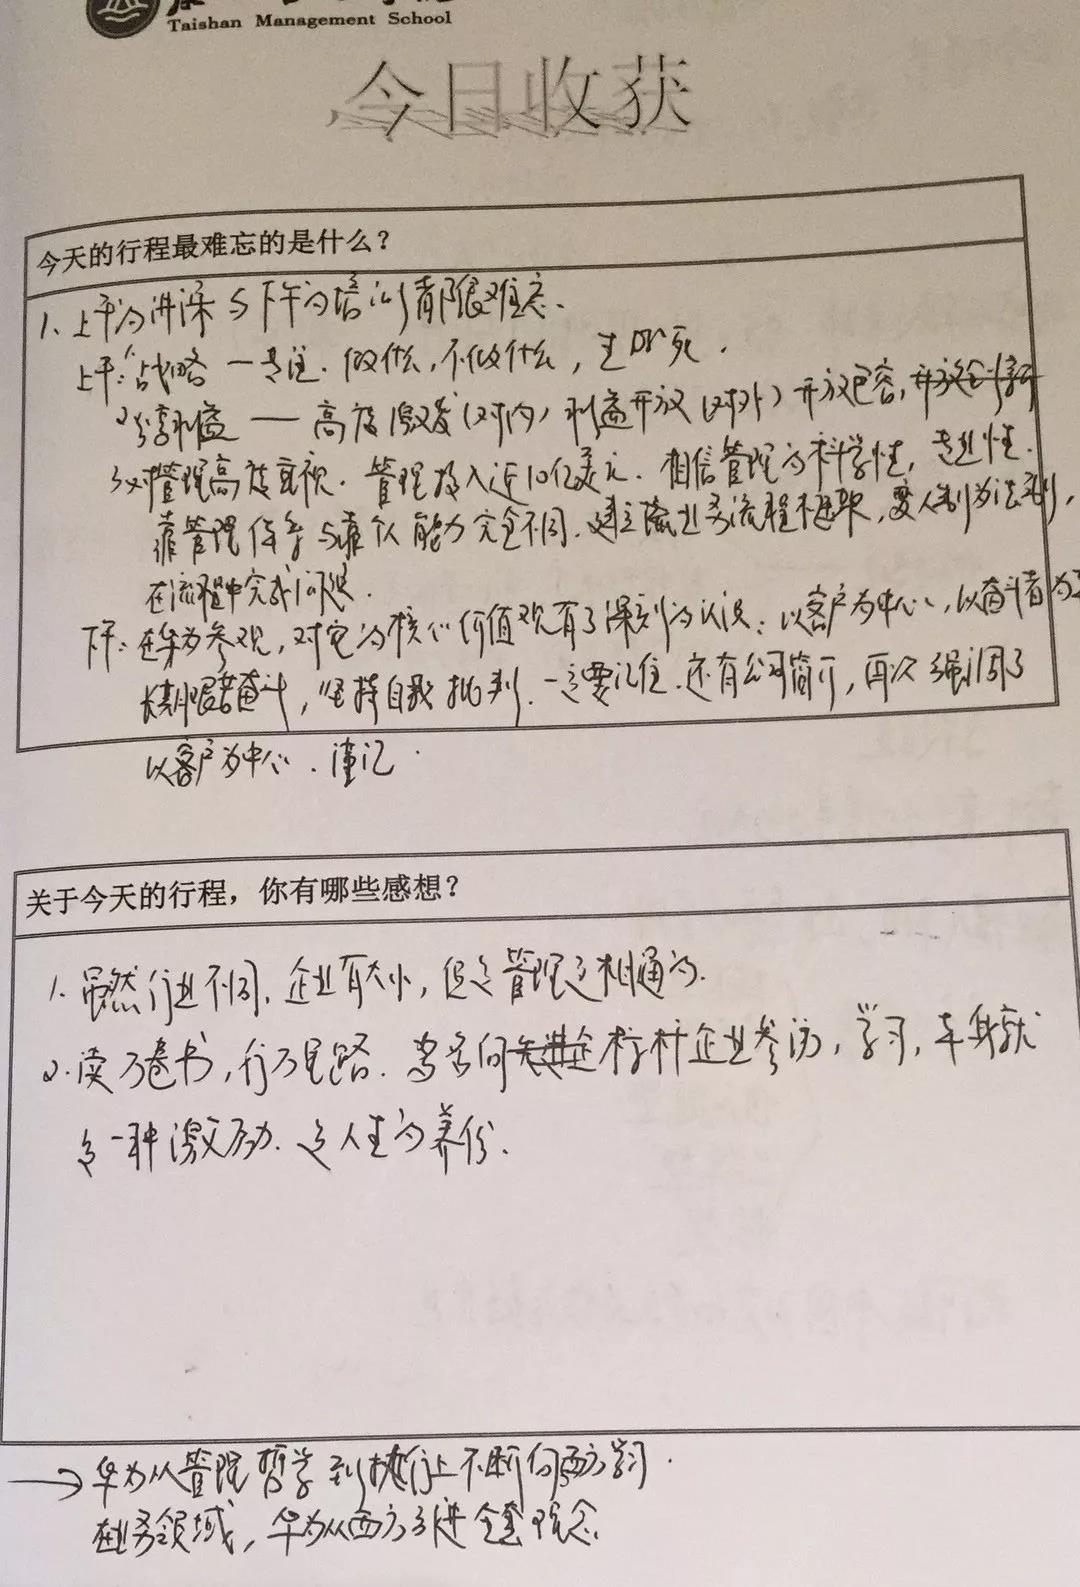 Taishan Management School
今日收获
今天的行程最难忘的是什么？
1、上午的讲课与下午的培训都很难忘、
上午：战略—专注．做什么，不做什么，生 死．
2分享利益——高度激发（对内）利益开放（对外）开放包容，
3对管理高度重视．管理投入近10亿美元．相信管理的科学性，专业性．
靠管理 与靠个人能力完全不同．建立 业务流程框架，变人制为法制，
在流程中完成 ．
下午：在华为参观，对它的核心价值观有了深刻的认识：以客户为中心，以奋斗者为
长期艰苦奋斗，坚持自我批判．一定要记住．还有公司简介，再次强调了
以客户为中心．谨记．
关于今天的行程，你有哪些感想？
1．虽然行业不同，企业有大小，但是管理是相通的．
2．读万卷书，行万里路． 向 标杆企业参访，学习，本身就
是一种激励．是人生的养份．
→华为从管理哲学到执行上不断向西方学习．
在业务领域，华为从西方引进全套观念．